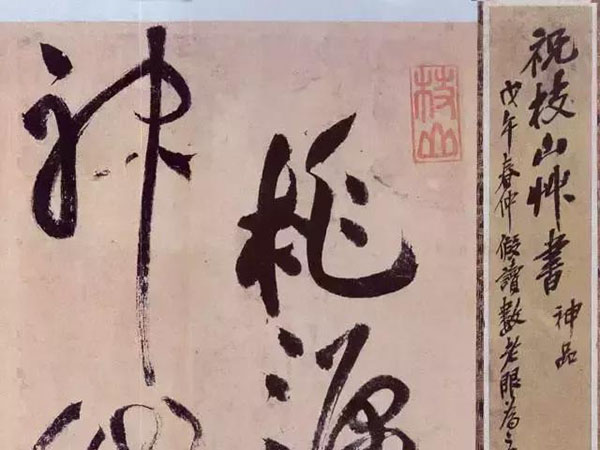 祝枝山艸書
神品
戊午春仲假讀數老眼為
枝山
桃源
神